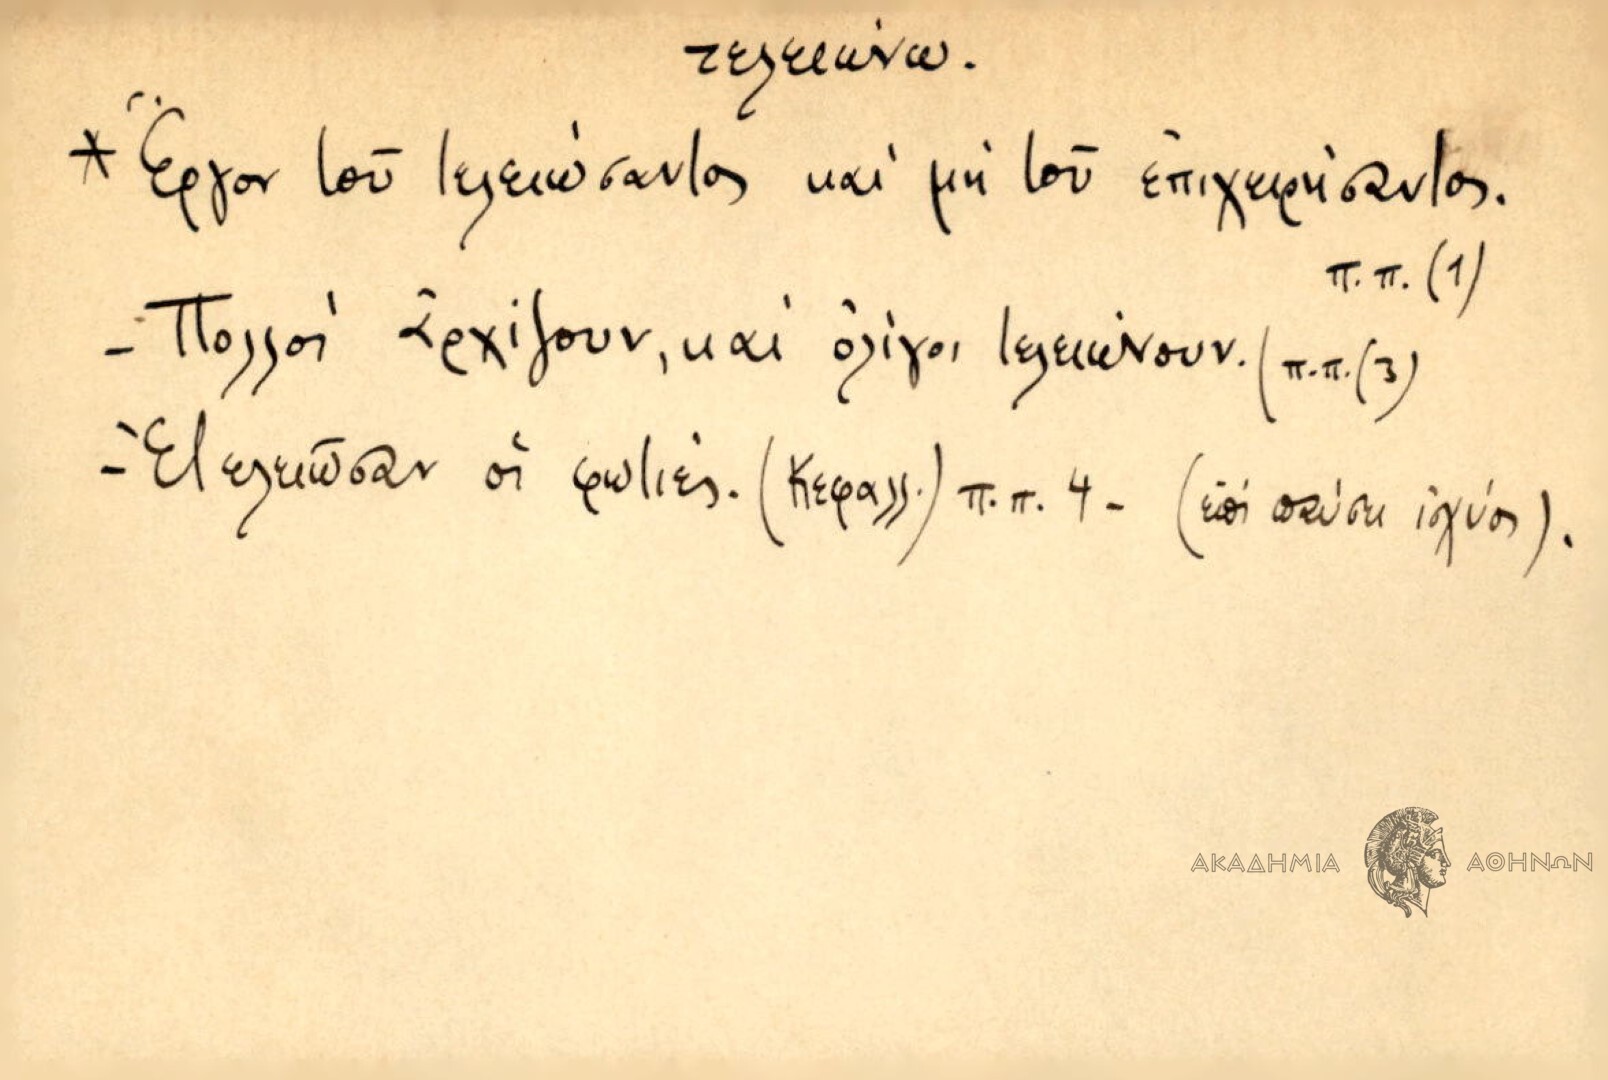 τελειώνω.
* Ἔργον τοῦ τελειώσαντος καὶ μὴ τοῦ ἐπιχειρήσαντος.
π.π. (1)
- Πολλοὶ ἀρχίζουν, καὶ ὀλίγοι τελειώνουν. (π.π. (3)
- Ἐτελειῶσαν οἱ φωτιές. (Κεφαλλ.) π.π. 4 - (ἐπὶ παύσει ἰσχύος).
ΑΚΑΔΗΜΙΑ ΑΘΗΝΩΝ